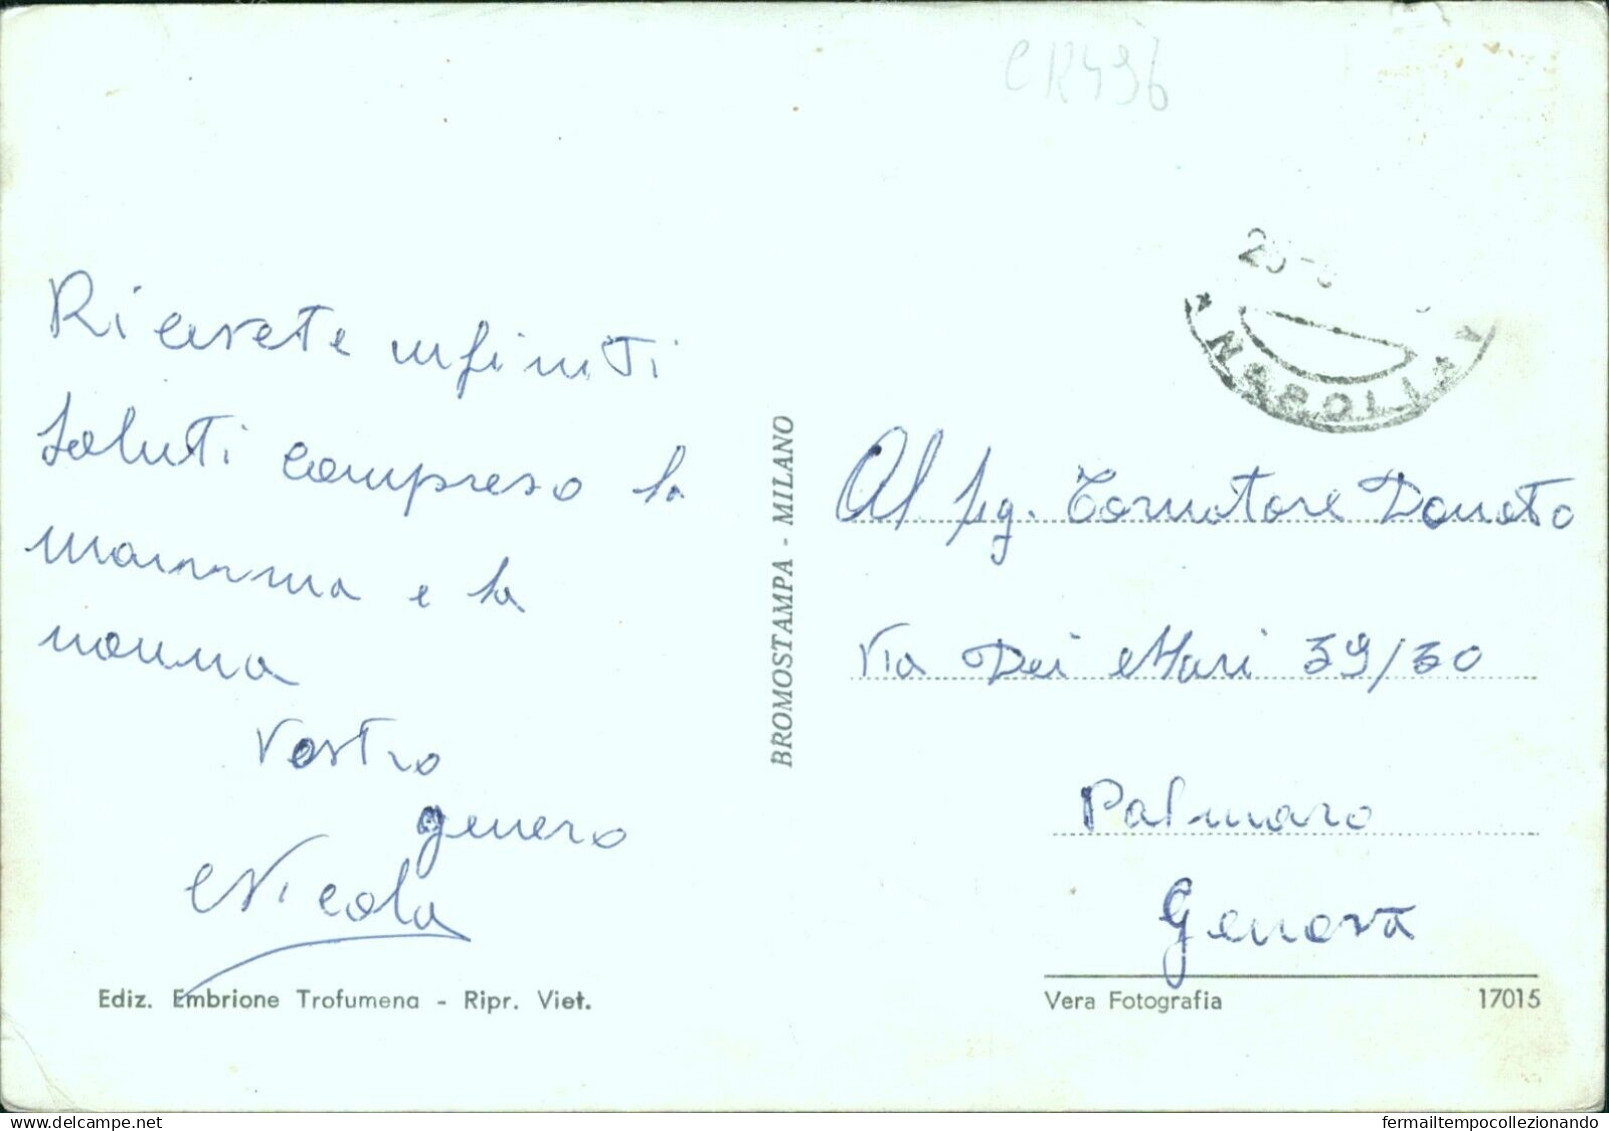 CR496
Ricevete infiniti
saluti compreso la
mamma e la
nonna
Vostro
genero
Nicola
Ediz. Embrione Trofumena - Ripr. Viet.
BROMOSTAMPA - MILANO
NAPOLI
Al Sig. Tornatore Donato
Via Dei Mari 39/30
Palmaro
Genova
Vera Fotografia 17015
fermailtempocollezionando